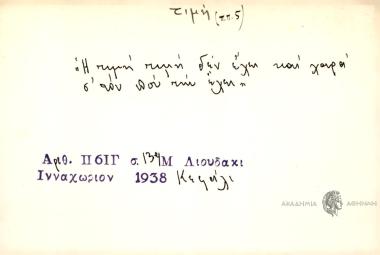 τιμή (τπ. 5)
«Ἡ τιμή τιμή δέν ἔχει καί χαρά
σ' τόν πού τήν ἔχει»
Αριθ. Π6ΙΓ σ. 134 Μ Λιουδακι
Ινναχωριον 1938 Κεφάλι
ΑΚΑΔΗΜΙΑ ΑΘΗΝΩΝ